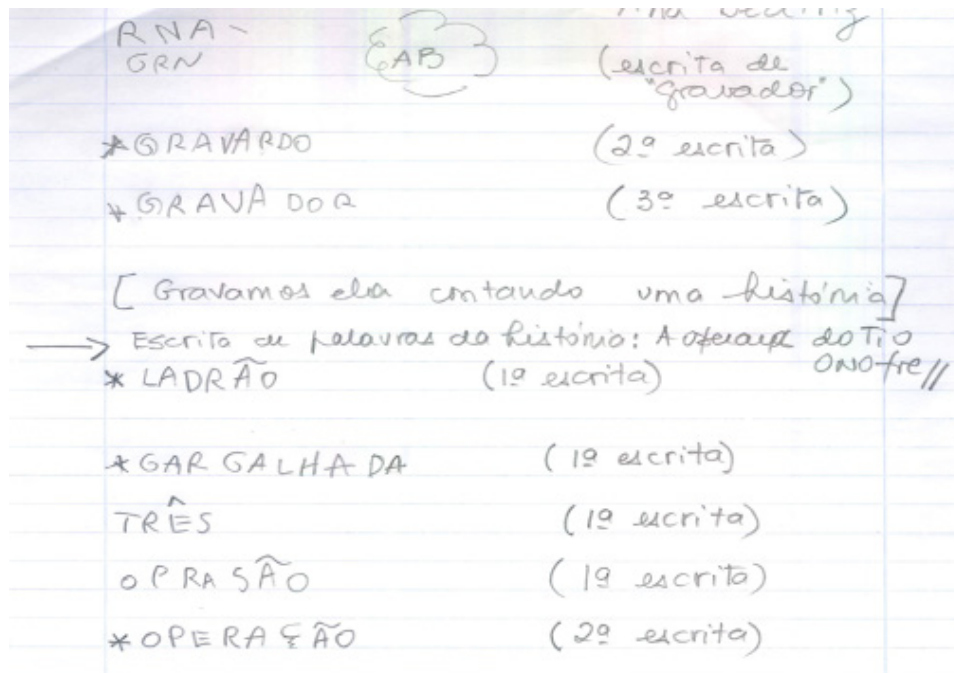 RNA -
GRN EAB (escrita de
"gravador")
*GRAVARDO (2ª escrita)
*GRAVADOR (3ª escrita)
[Gravamos ela contando uma história]
→ Escrita de palavras da história: A do Tio
ONOfre//
*LADRÃO (1ª escrita)
*GARGALHADA (1ª escrita)
TRÊS (1ª escrita)
OPRASÃO (1ª escrita)
*OPERAÇÃO (2ª escrita)